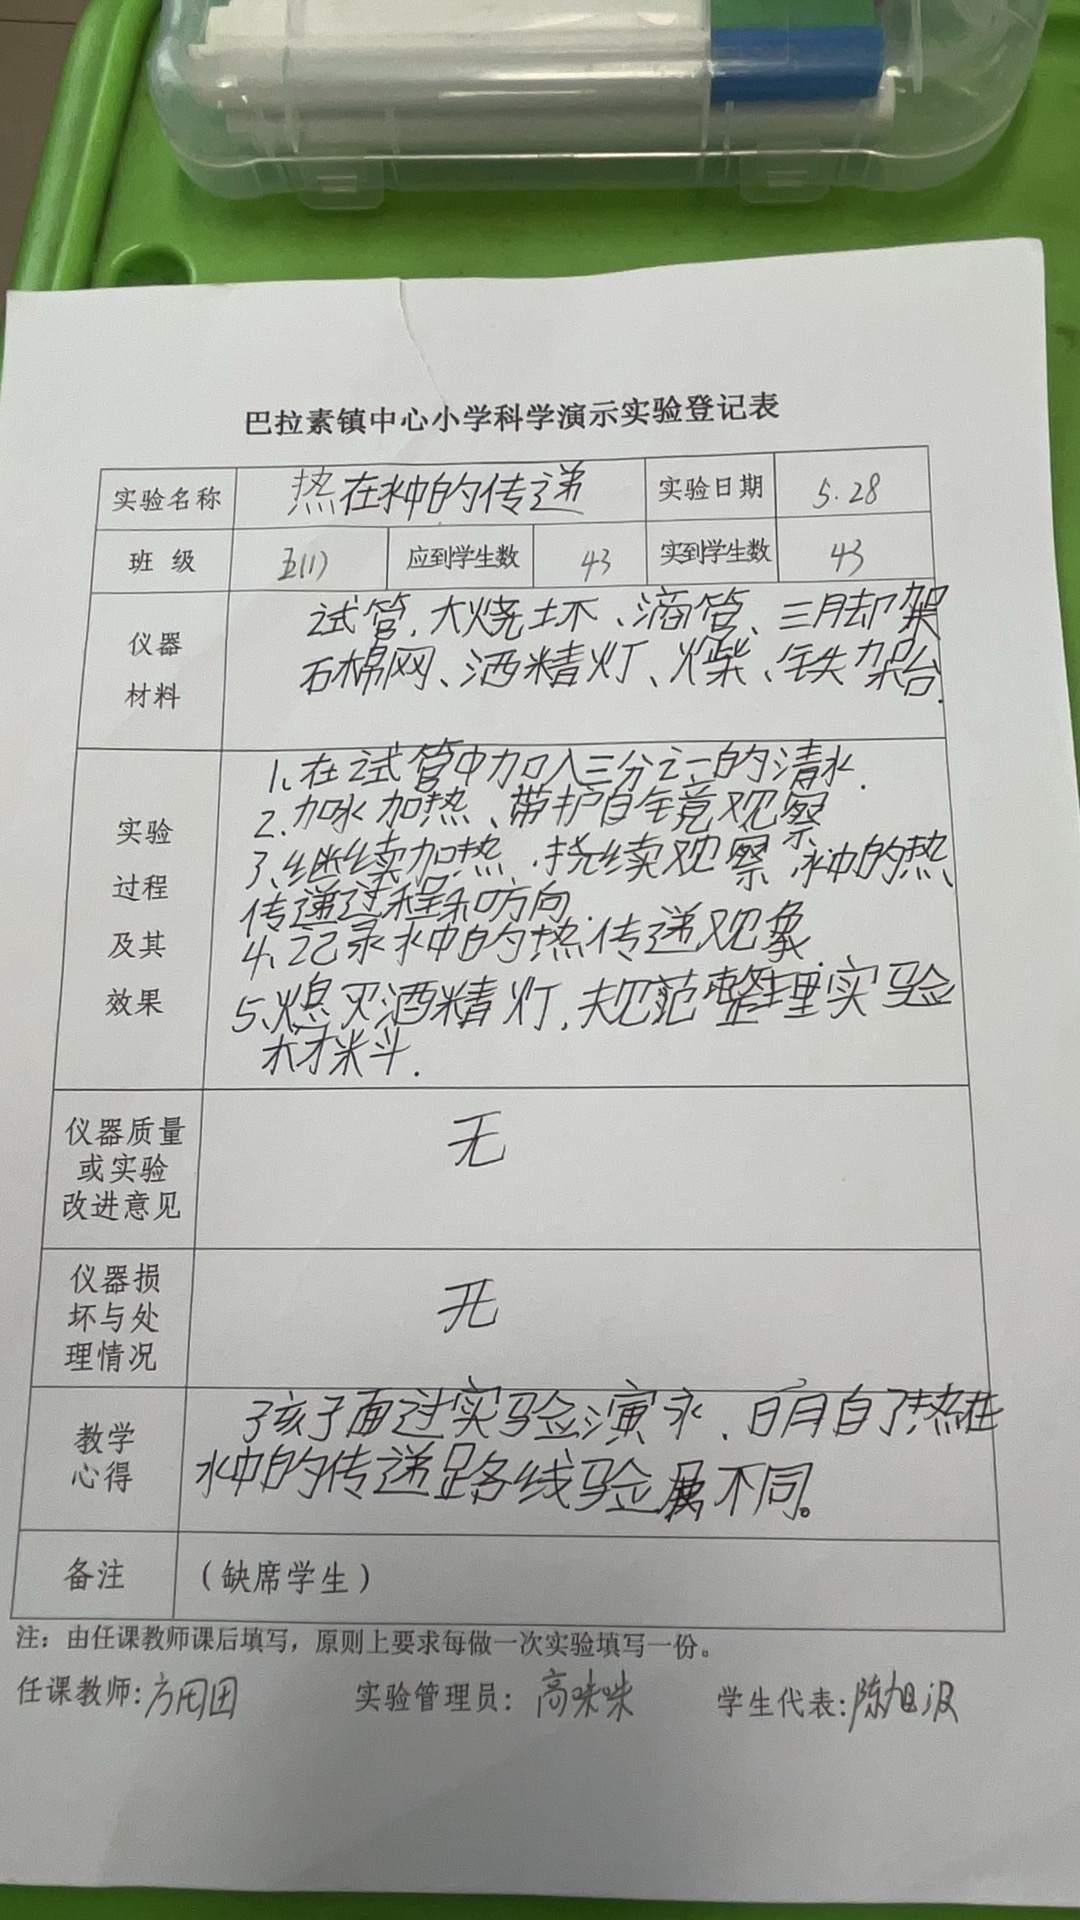 巴拉素镇中心小学科学演示实验登记表
实验名称 热在水中的传递 实验日期 5.28
班 级 五(1) 应到学生数 43 实到学生数 43
仪器
材料
试管、大烧杯、滴管、三脚架
石棉网、酒精灯、火柴、铁架台.
实验
过程
及其
效果
1、在试管中加入三分之一的清水.
2.加水加热、带护目镜观察
3、继续加热.持续观察水中的热
传递过程和方向.
4、记录水中的热传递现象.
5、熄灭酒精灯,规范整理实验
材料.
仪器质量
或实验
改进意见
无
仪器损
坏与处
理情况
无
教学
心得
孩子面过实验演示、明白了热在
水中的传递路线验属不同。
备注 (缺席学生)
注:由任课教师课后填写,原则上要求每做一次实验填写一份。
任课教师: 实验管理员: 高咪咪 学生代表: 陈旭